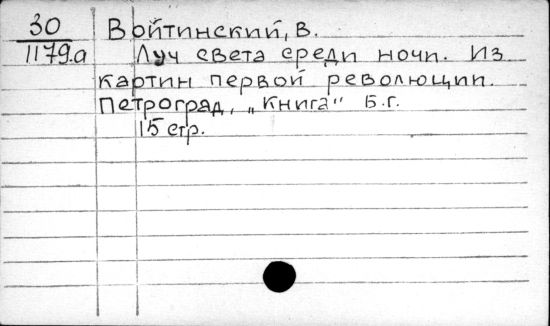 30 Войтинский, В.
1179.а Луч света среди ночи. Из
картин первой революции.
Петроград, „Книга“ Б.г.
15 стр.